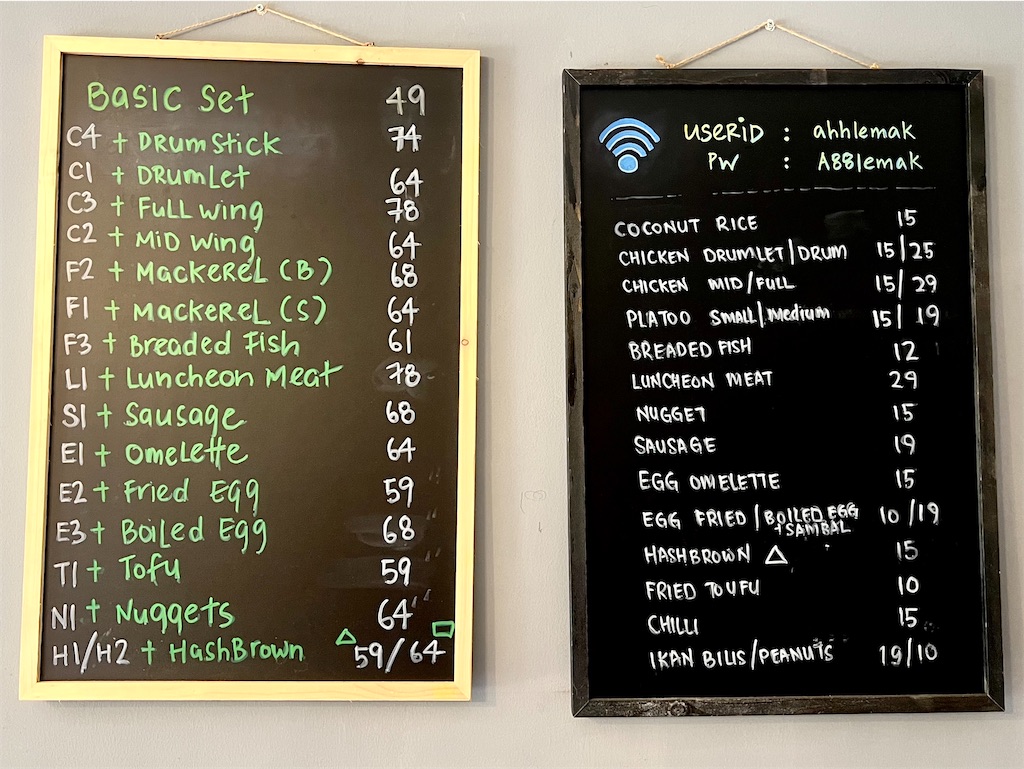 Basic Set 49
C4 + DRumStick 74
C1 + DRumLet 64
C3 + Full wing 78
C2 + MiD wing 64
F2 + MackeReL (B) 68
F1 + MackeReL (S) 64
F3 + Breaded Fish 61
L1 + Luncheon Meat 78
S1 + Sausage 68
E1 + OmeLette 64
E2 + Fried Egg 59
E3 + BoiLed Egg 68
T1 + Tofu 59
N1 + Nuggets 64
H1/H2 + HashBrown 59/64
USERiD : ahhlemak
PW : A88lemak
COCONUT RICE 15
CHICKEN DRUMLET/DRUM 15/25
CHICKEN MID/FULL 15/29
PLATOO SMALL/Medium 15/19
BREADED FISH 12
LUNCHEON MEAT 29
NUGGET 15
SAUSAGE 19
EGG OMELETTE 15
EGG FRIED/BOILED EGG 10/19
+SAMBAL
HASHBROWN 15
FRIED TOUFU 10
CHILLI 15
IKAN BILIS/PEANUTS 19/10